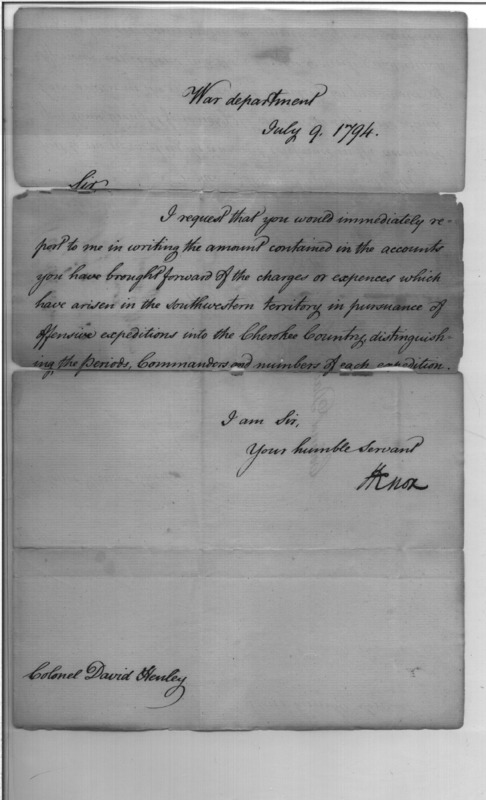 War department
July 9. 1794.
Sir
I request that you would immediately re-
port to me in writing the amount contained in the accounts
you have brought forward of the charges or expences which
have arisen in the southwestern territory in pursuance of
offensive expeditions into the Cherokee Country, distinguish-
ing the Periods, Commanders and numbers of each expedition.
I am Sir,
Your humble servant
HKnox
Colonel David Henley